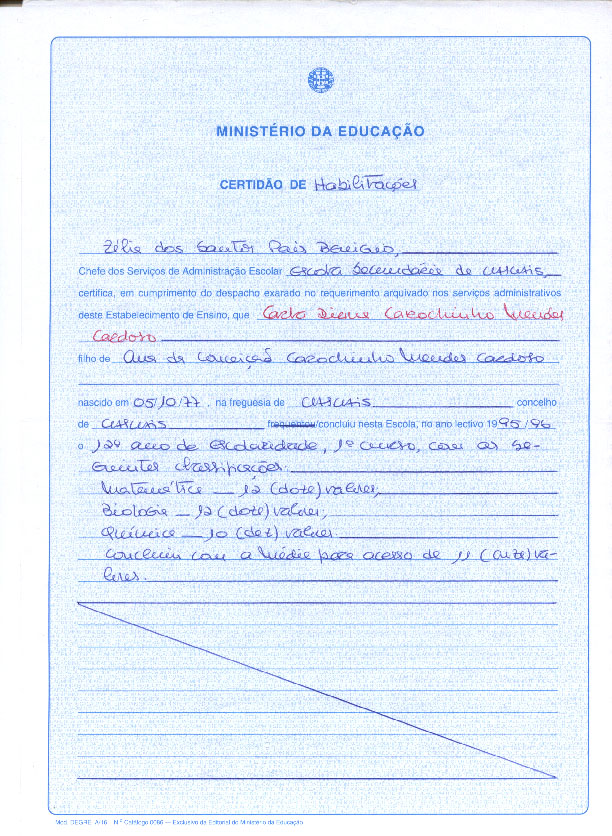 MINISTÉRIO DA EDUCAÇÃO
CERTIDÃO DE Habilitações
Zélia dos Santos Pais Benigno,
Chefe dos Serviços de Administração Escolar Escola Secundária de Cascais,
certifica, em cumprimento do despacho exarado no requerimento arquivado nos serviços administrativos
deste Estabelecimento de Ensino, que Carla Diana Carochinho Mendes
Cardoso
filho de Ana da Conceição Carochinho Mendes Cardoso
nascido em 05/10/77, na freguesia de Cascais concelho
de Cascais frequentou/concluiu nesta Escola, no ano lectivo 1995/96
o 12º ano de Escolaridade, 1º curso, com as se-
guintes classificações:
Matemática — 12 (doze) valores,
Biologia — 12 (doze) valores,
Química — 10 (dez) valores.
Concluiu com a Média para acesso de 11 (onze) va-
lores.
Mod. DEGRE A/16 N.º Catálogo 0086 — Exclusivo da Editorial do Ministério da Educação